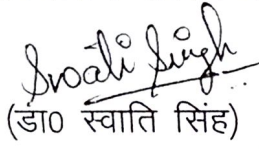 Swati Singh
(डा0 स्वाति सिंह)